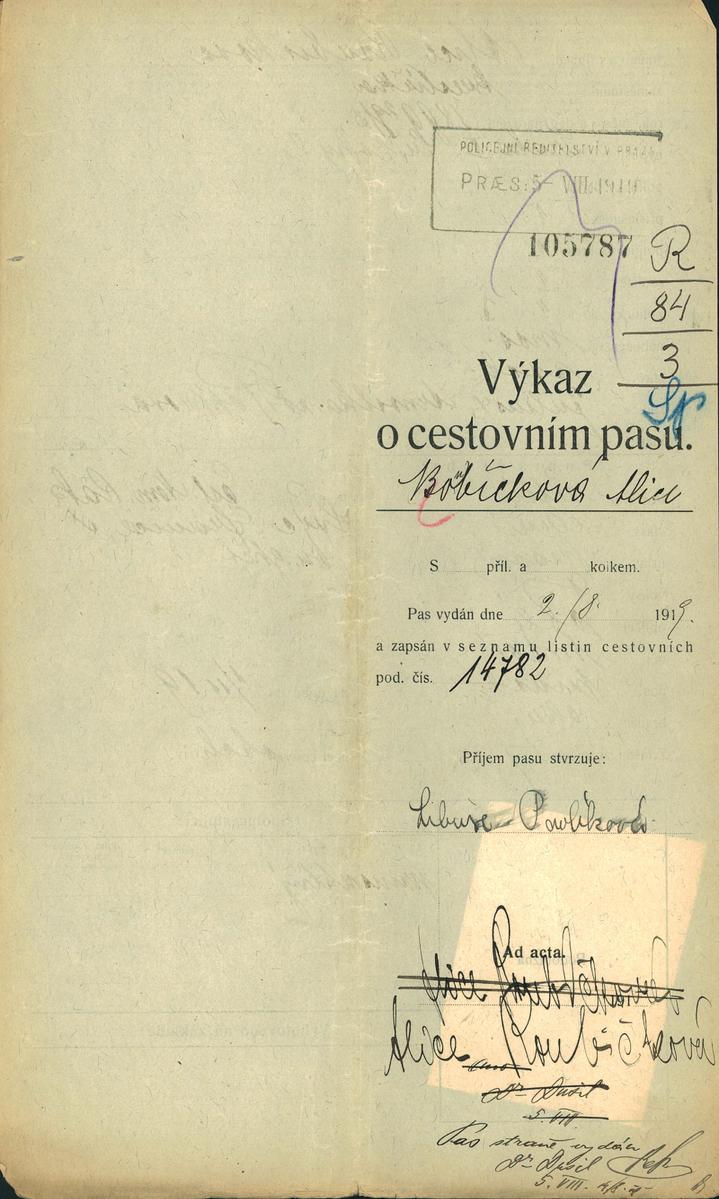 POLICEJNÍ ŘEDITELSTVÍ V PRAZE
PRÆS: 5- VIII. 1919
105787
R
84
3
Sp
Výkaz
o cestovním pasu.
Alice
S příl. a kolkem.
Pas vydán dne 2./8. 1919.
a zapsán v seznamu listin cestovních
pod. čís. 14782
Příjem pasu stvrzuje:
Libuše Pavlíková
Ad acta.
Alice Roubíčková
Alice Roubíčková
Dr Dušil
5. VIII
Pas straně vydán
Dr Dušil
5. VIII.